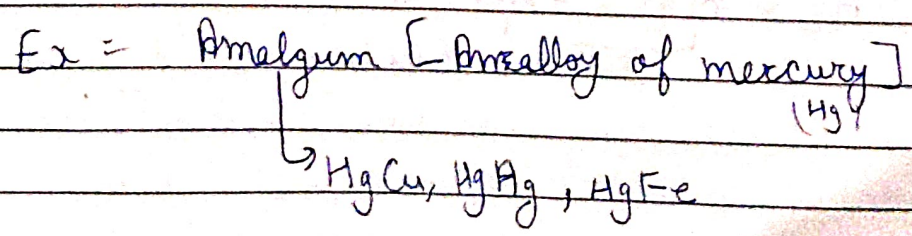 Ex = Amalgum [An alloy of mercury]
(Hg)
HgCu, HgAg, HgFe